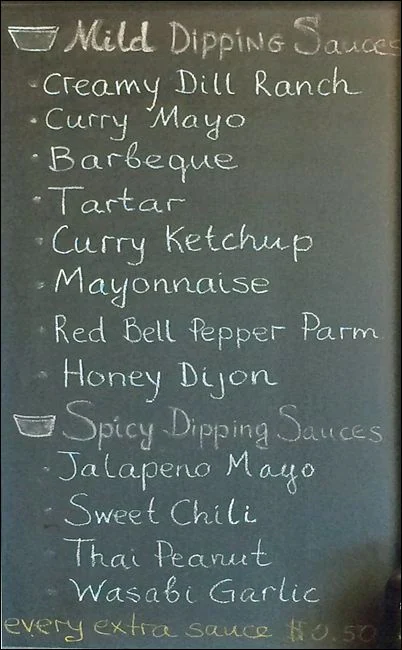 Mild Dipping Sauces
· Creamy Dill Ranch
· Curry Mayo
· Barbeque
· Tartar
· Curry Ketchup
· Mayonnaise
· Red Bell Pepper Parm
· Honey Dijon
Spicy Dipping Sauces
· Jalapeno Mayo
· Sweet Chili
· Thai Peanut
· Wasabi Garlic
every extra sauce $0.50